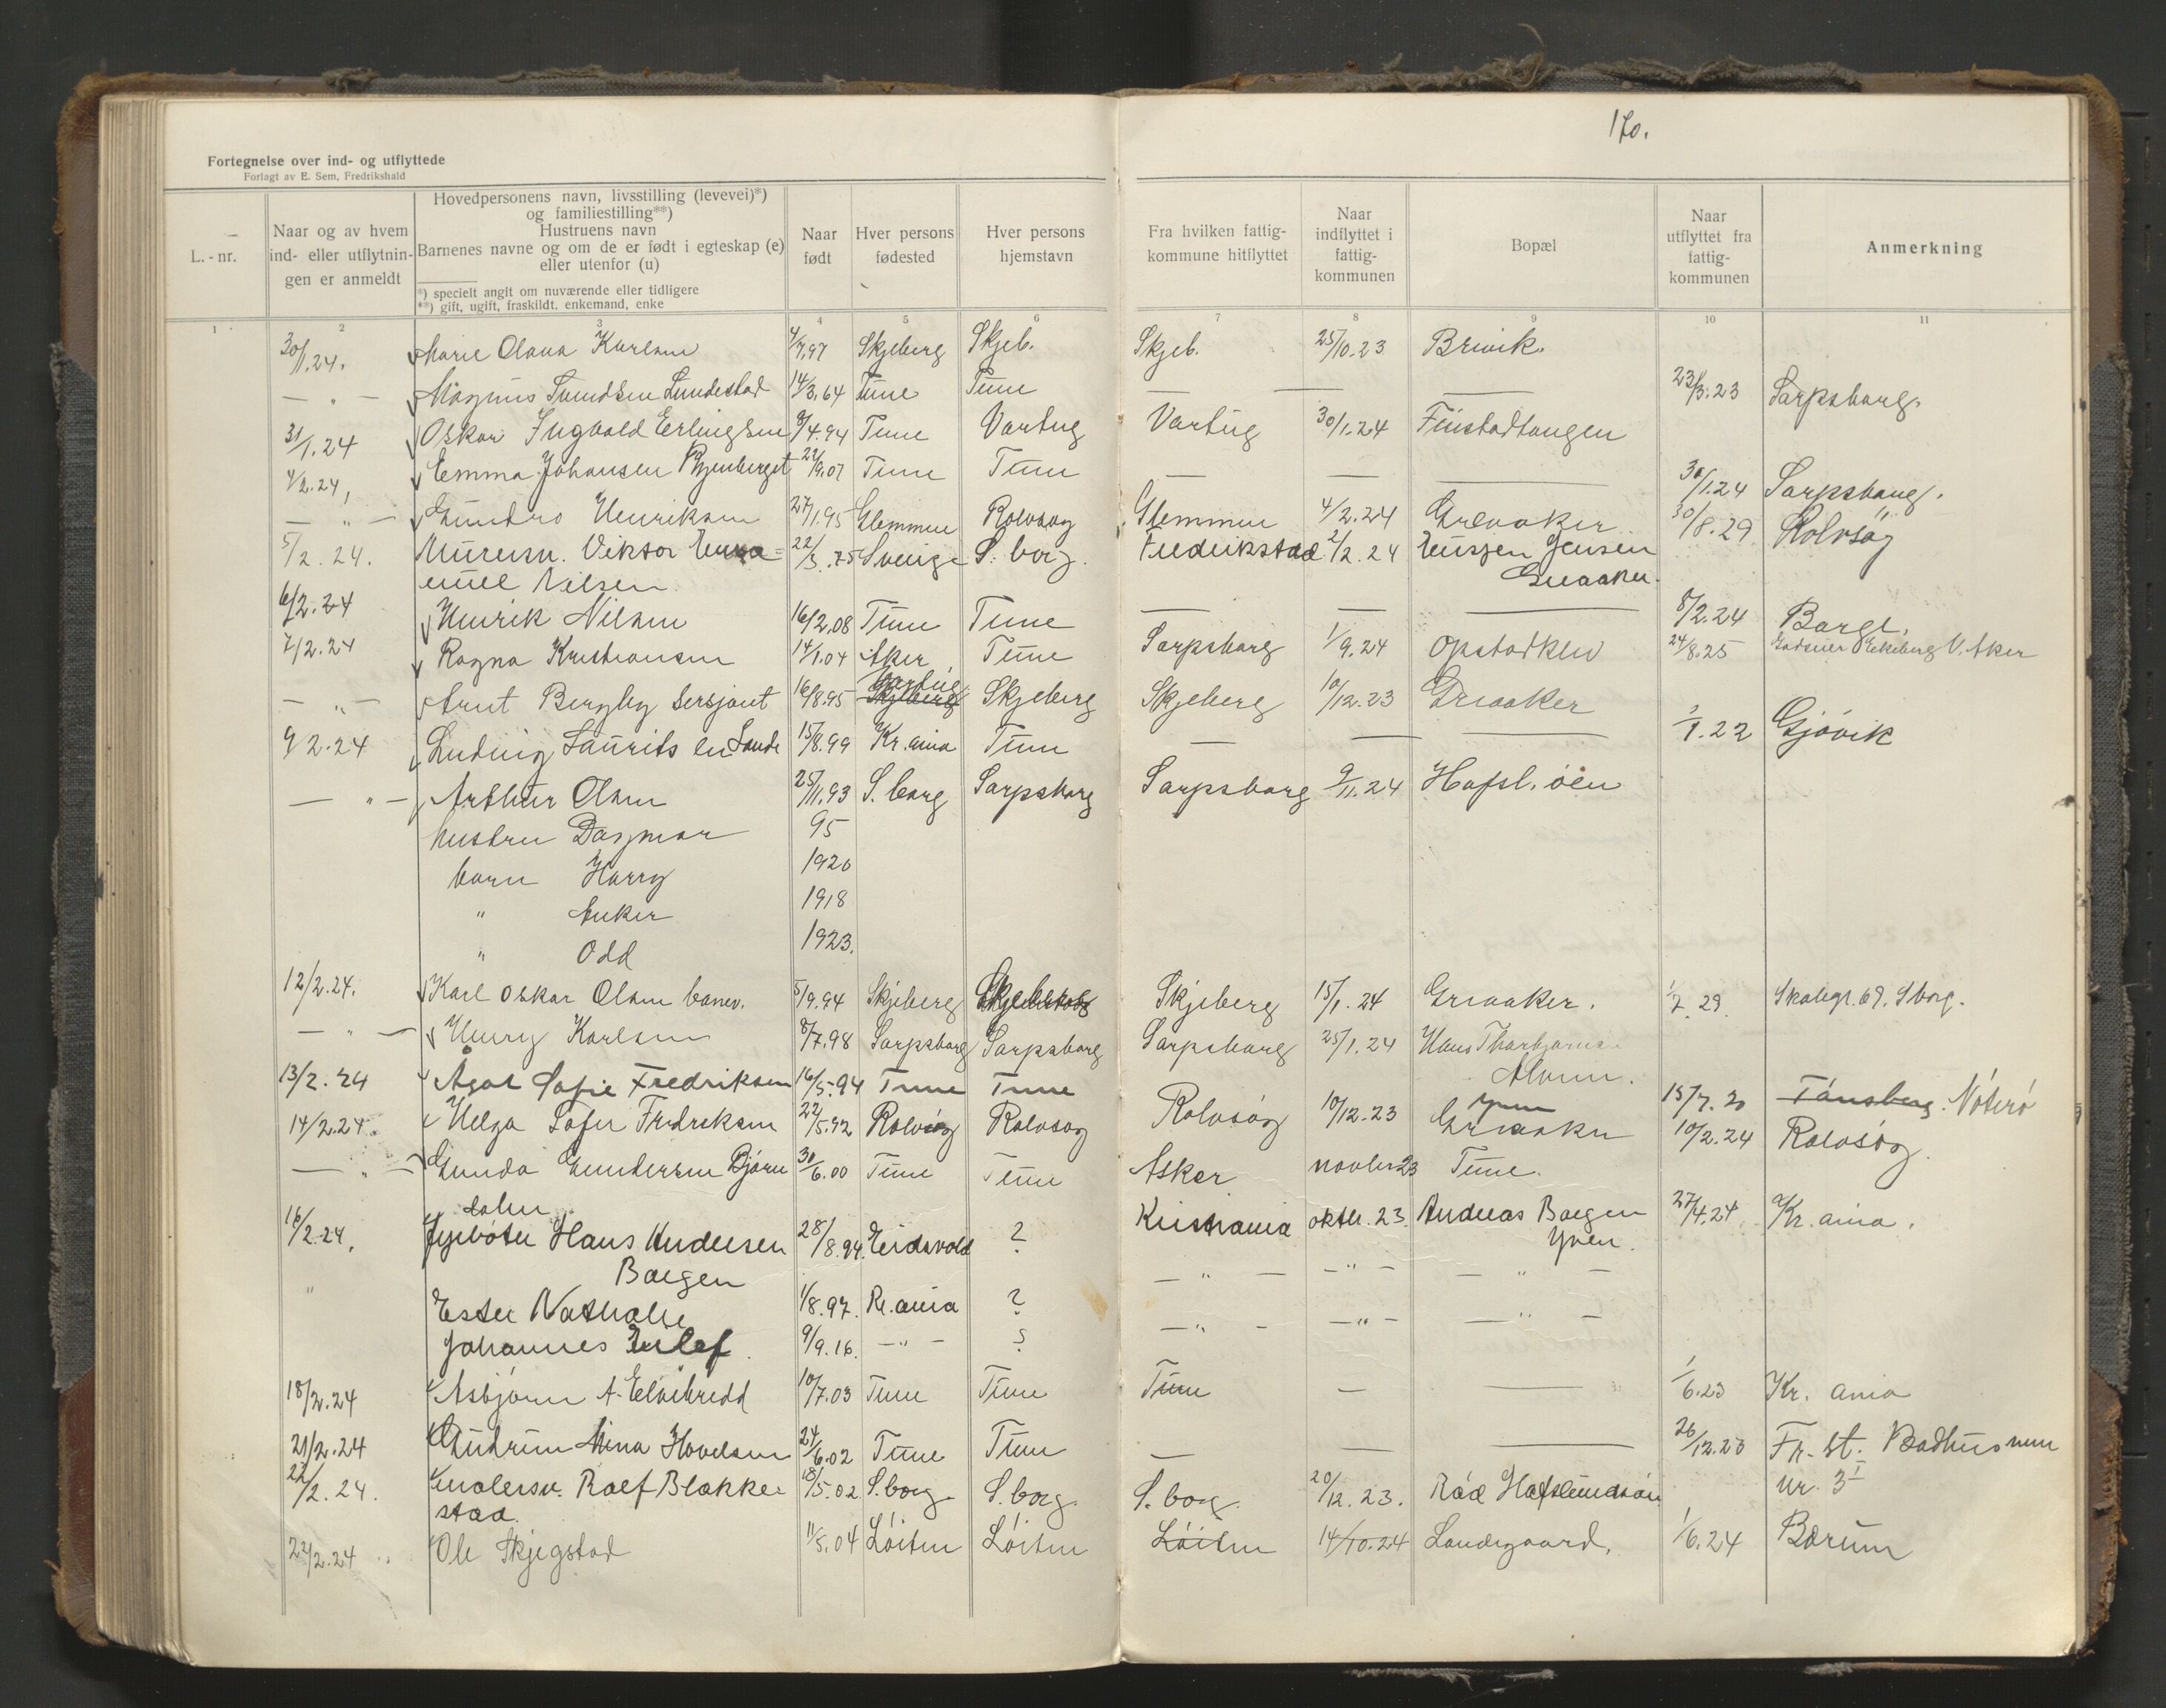 170.
Fortegnelse over ind- og utflyttede
Forlagt av E. Sem, Fredrikshald
L.-nr.
Naar og av hvem ind- eller utflytningen er anmeldt
Hovedpersonens navn, livsstilling (levevei)*)
og familiestilling**)
Hustruens navn
Barnenes navne og om de er født i egteskap (e)
eller utenfor (u)
*) specielt angit om nuværende eller tidligere
**) gift, ugift, fraskildt, enkemand, enke
Naar født
Hver persons fødested
Hver persons hjemstavn
Fra hvilken fattigkommune hitflyttet
Naar indflyttet i fattigkommunen
Bopæl
Naar utflyttet fra fattigkommunen
Anmerkning
1 2 3 4 5 6 7 8 9 10 11
30/1.24. Marie Olava Karlsen 4/7.97 Skjeberg Skjeb. Skjeb. 25/10.23 Brevik.
— " — Magnus Lundestad 14/3.64 Tune Tune — — — 23/3.23 Sarpsborg.
31/1.24 Oskar Ingvald Erlingsen 9/4.94 Tune Varteig Varteig 30/1.24 Finstadtangen
4/2.24, Emma Johansen 22/9.07 Tune Tune — — — 30/1.24 Sarpsborg.
— " — Henriksen 27/1.95 Glemmen Rolvsøy Glemmen 4/2.24 Greaaker 30/8.29 Rolvsøy
5/2.24. Murersv. Viktor
emil Nilsen 22/3.75 Sverige S.borg. Fredrikstad 2/2.24 Jensen
Greaaker.
6/2.24 Henrik Nilsen 16/2.08 Tune Tune — — — 8/2.24 Borge.
7/2.24 Ragna Kristiansen 14/1.04 Aker Tune Sarpsborg 1/9.24 Opstadklev 24/8.25 Ekeberg V. Aker
— " — Arnt Bergby Sersjant 16/8.95 Skjeberg Varteig Skjeberg Skjeberg 10/12.23 Greaaker
9/2.24 Ludvig Laurits Lunde 15/8.99 Kr.ania Tune — — — 1/1.22 Gjøvik
— " — Arthur Olsen 25/11.93 S.borg Sarpsborg Sarpsborg 9/11.24 Hafsl.øen
hustru Dagmar 95
barn Harry 1920
" Anker 1918
" Odd 1923.
12/2.24. Karl Oskar Olsen banev. 5/9.94 Skjeberg Skjeberg 15/1.24 Greaaker. 1/7.29. Skolegt.69. Sborg.
— " — Henry Karlsen 8/7.98 Sarpsborg Sarpsborg Sarpsborg 25/1.24 Hans Thorbjørnsen
Alvim.
13/2.24 Ågot Sofie Fredriksen 16/5.94 Tune Tune 15/7.20 Tønsberg. Nøterø
14/2.24. Helga Sofie Fredriksen 22/5.92 Rolvsøy Rolvsøy Rolvsøy 10/12.23 Yven Greaaker 10/2.24 Rolvsøy.
— " — Gunda Gundersen Bjørn
dalen 30/6.00 Tune Tune Asker novbr 23 Tune.
16/2.24. Jypsøter Hans Andersen
Baegen 28/8.94. Eidsvold ? Kristiania oktbr. 23. Andreas Baegen
Yven. 27/4.24 Kr.ania.
" Ester Nathalie 1/8.97. Kr.ania ? — " — — " — — " —
Johannes 9/9.16. — " — ? — " — — " — — " —
18/2.24 Asbjørn A. Elvebredd 10/7.03 Tune Tune Tune — — 1/6.23 Kr. ania
21/2.24 Gudrun Mina Hovelsen 24/6.02 Tune Tune — — — 26/12.23 Fr.st. Badhusveien
nr. 3
22/2.24. Rolf Blakke
stad. 18/5.02 S.borg S.borg. S.borg. 20/12.23. Rød Hafslundsøen
22/2.24 Ole Skjegstad 11/5.04 Løiten Løiten Løiten 14/10.24 Landegaard. 1/6.24 Bærum